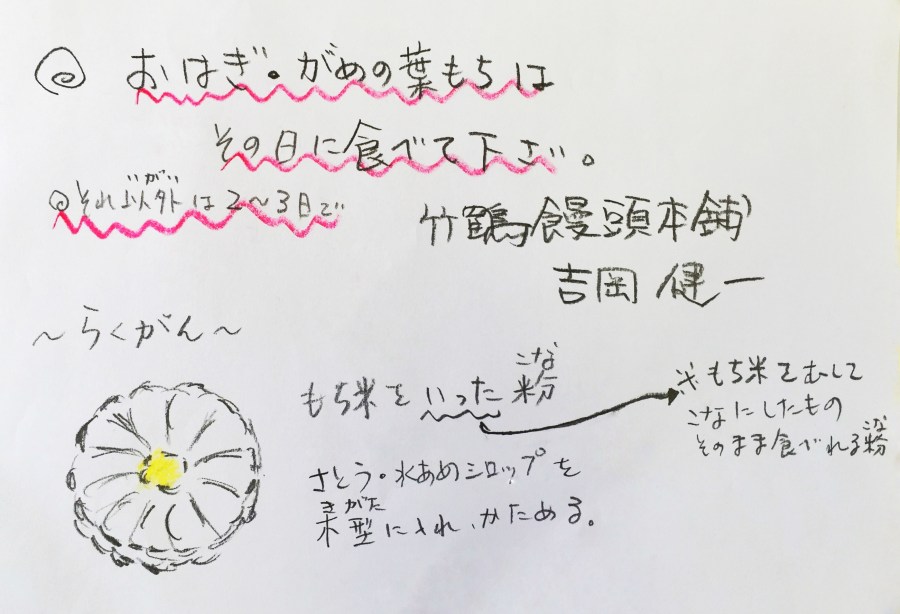 ◎ おはぎ。がめの葉もちは
その日に食べて下さい。
◎それ以外は2〜3日で
いがい
竹鶴饅頭本舗
吉岡 健一
〜らくがん〜
もち米をいった粉
こな
※もち米をむして
こなにしたもの
そのまま食べれる粉
こな
さとう。水あめシロップを
木型に入れ、かためる。
きがた